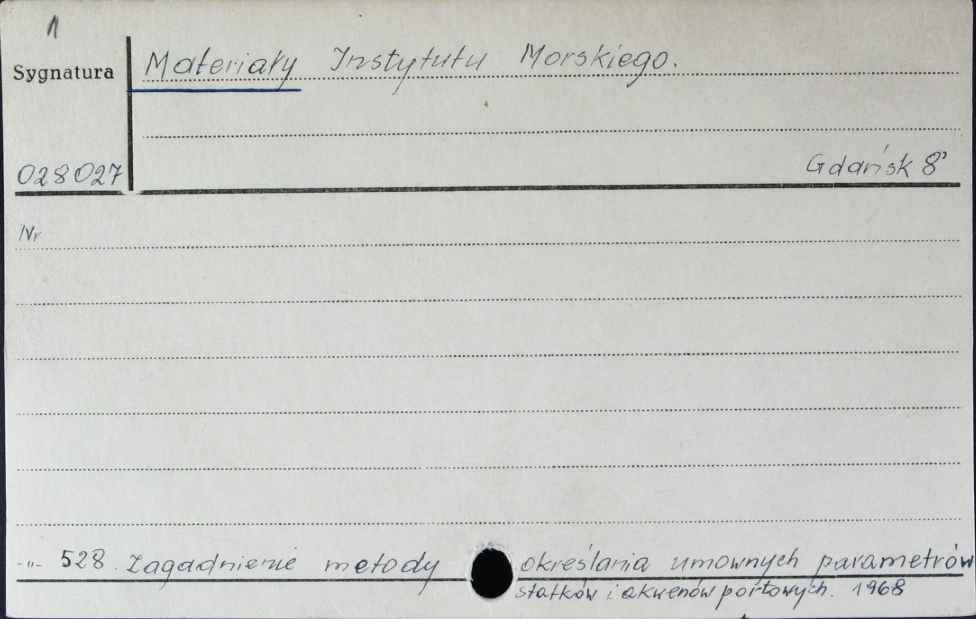 1
Sygnatura Materiały Instytutu Morskiego.
028027 Gdańsk 8°
Nr
-"- 528. Zagadnienie metody określania umownych parametrów
statków i akwenów portowych. 1968